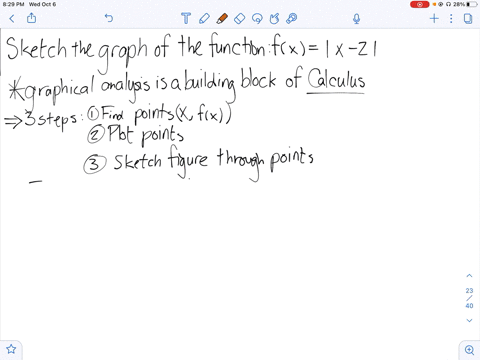 8:29 PM Wed Oct 6
28%
Sketch the graph of the function: f(x) = |x-2|
*graphical analysis is a building block of Calculus
⇒ 3 steps: ① Find points (x, f(x))
② Plot points
③ Sketch figure through points
23
/
40